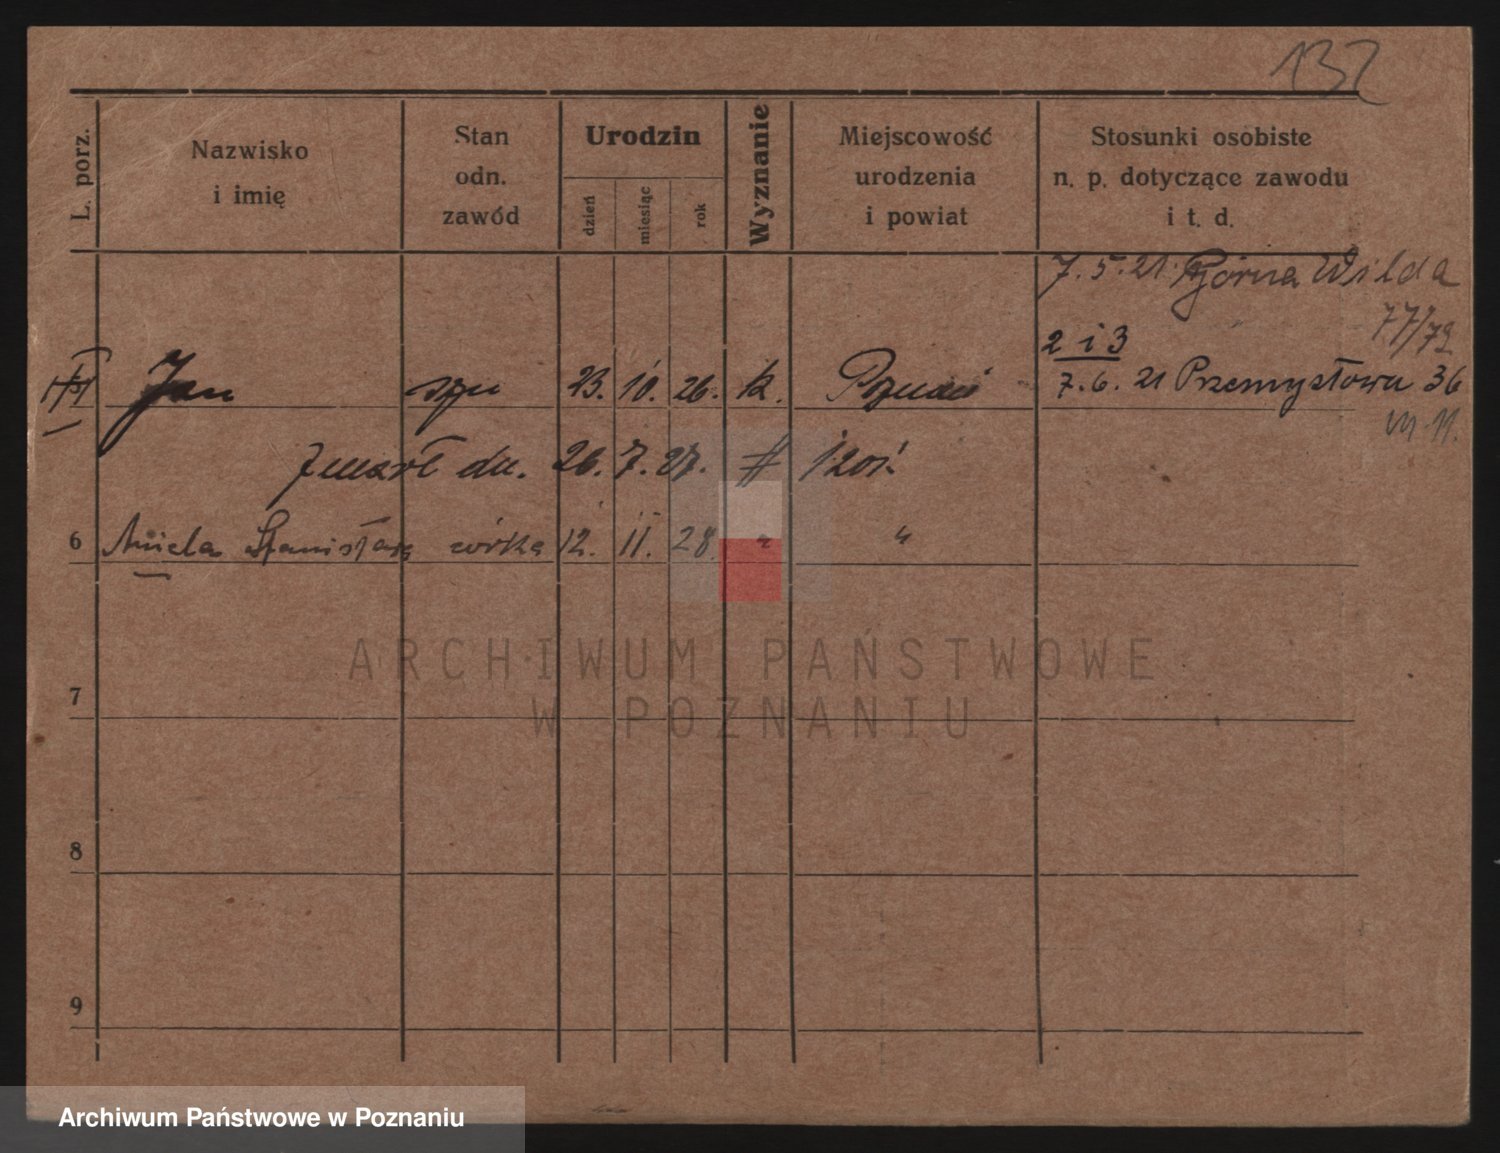 132
L. porz.
Nazwisko
i imię
Stan
odn.
zawód
Urodzin
dzień
miesiąc
rok
Wyznanie
Miejscowość
urodzenia
i powiat
Stosunki osobiste
n. p. dotyczące zawodu
i t. d.
7. 5. 21 Górna Wilda
77/79
2 i 3
Jan syn 23. 10. 26. k. Poznań 7. 6. 21 Przemysłowa 36
m 11.
Zmarł dn. 26. 7. 27. #
6 Aniela Stanisława córka 12. 11. 28. " "
7
8
9
ARCHIWUM PAŃSTWOWE
W POZNANIU
Archiwum Państwowe w Poznaniu